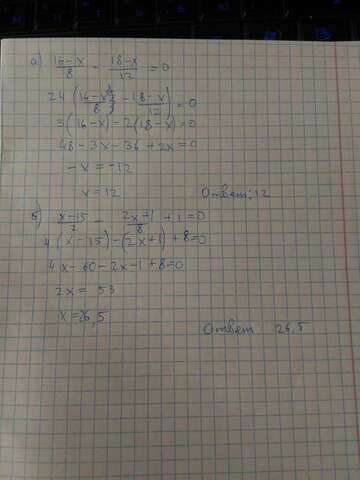 а) 16-x/8 - 18-x/12 = 0
24 (16-x/8 - 18-x/12) = 0
3(16-x) - 2(18-x) = 0
48 - 3x - 36 + 2x = 0
-x = -12
x = 12 Ответ: 12
б) x-15/2 - 2x+1/8 + 1 = 0
4(x-15) - (2x+1) + 8 = 0
4x - 60 - 2x - 1 + 8 = 0
2x = 53
x = 26,5
Ответ: 26,5